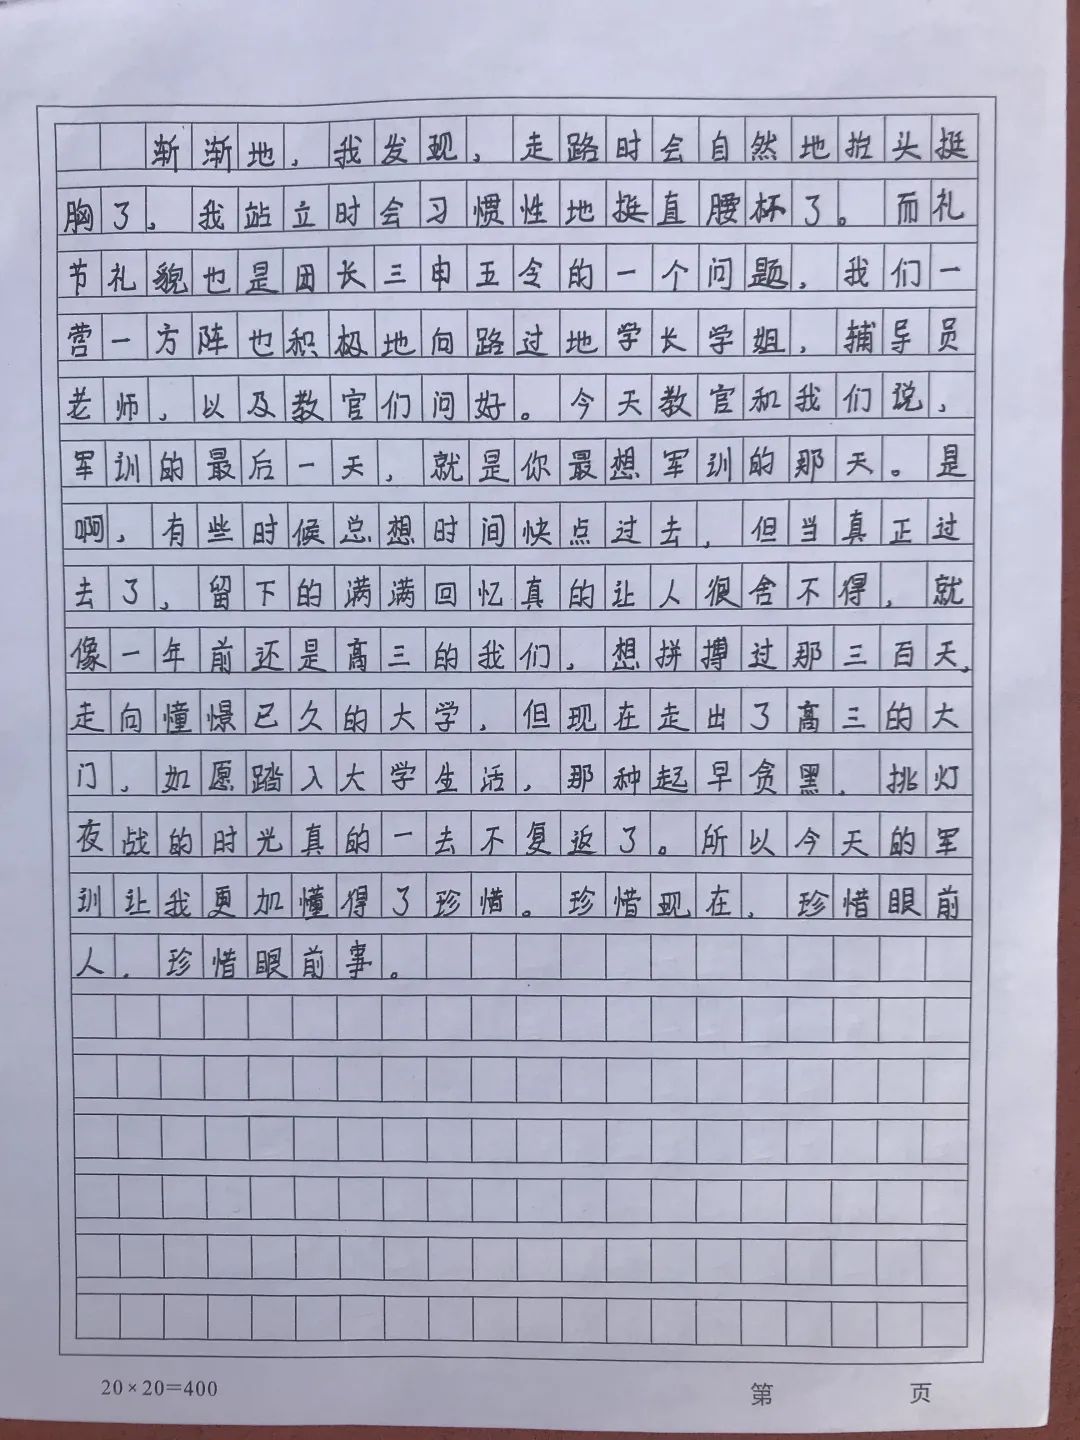 渐渐地，我发现，走路时会自然地抬头挺
胸了，我站立时会习惯性地挺直腰杯了。而礼
节礼貌也是团长三申五令的一个问题，我们一
营一方阵也积极地向路过地学长学姐，辅导员
老师，以及教官们问好。今天教官和我们说，
军训的最后一天，就是你最想军训的那天。是
啊，有些时候总想时间快点过去，但当真正过
去了，留下的满满回忆真的让人很舍不得，就
像一年前还是高三的我们，想拼搏过那三百天，
走向憧憬已久的大学，但现在走出了高三的大
门，如愿踏入大学生活，那种起早贪黑，挑灯
夜战的时光真的一去不复返了。所以今天的军
训让我更加懂得了珍惜。珍惜现在，珍惜眼前
人，珍惜眼前事。
20×20=400
第 页